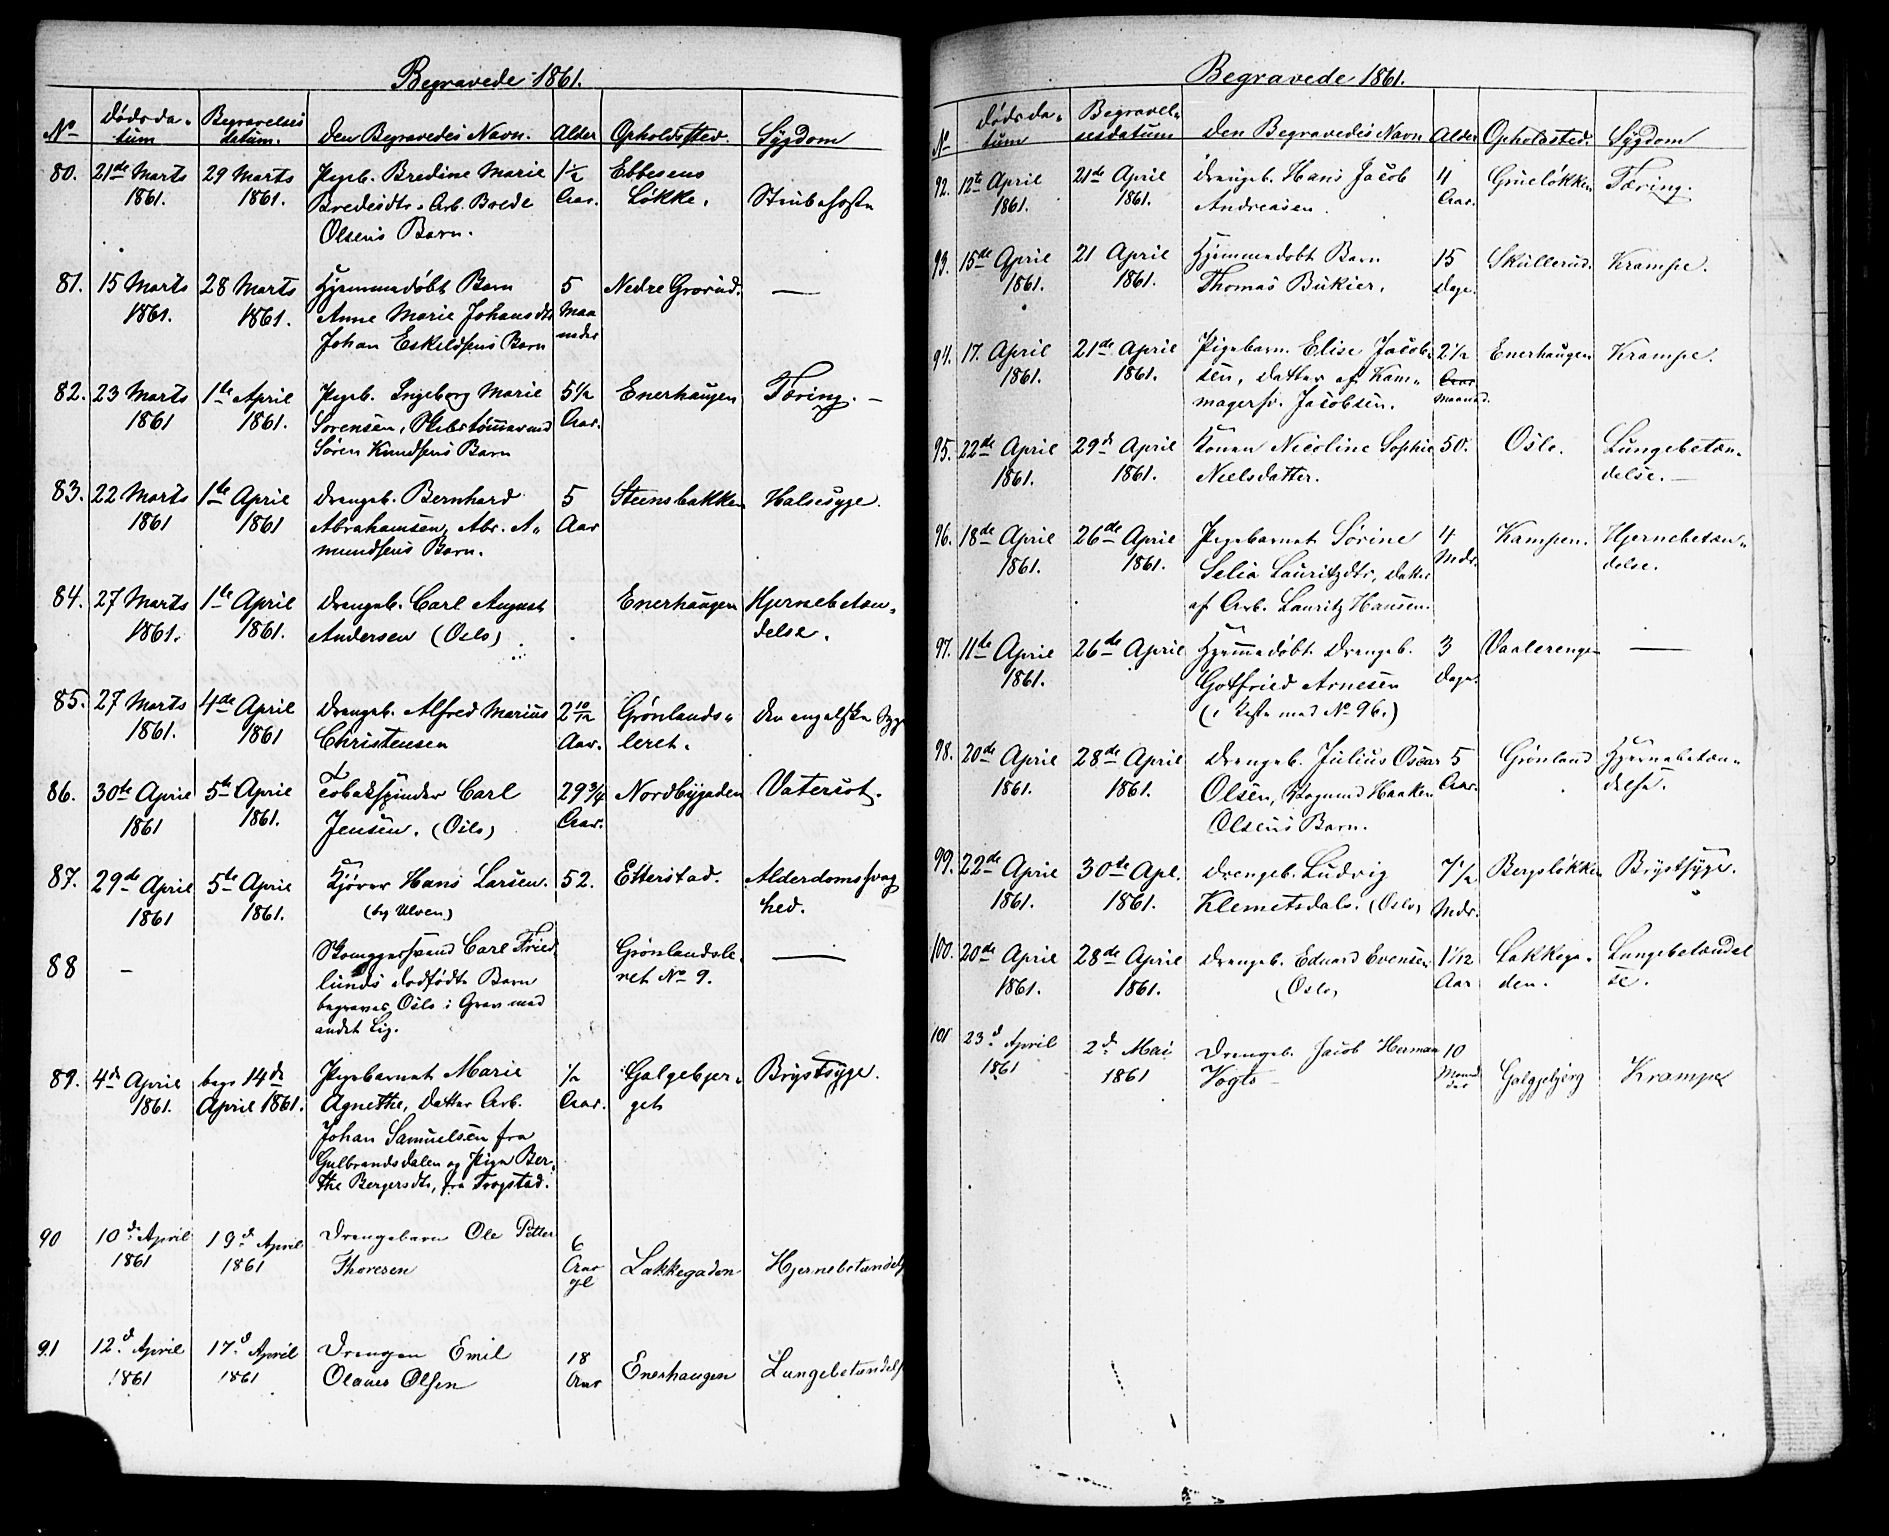 Begravede 1861.
No
Dødsda-
tum
Begravelses
datum.
Den Begravedes Navn.
Alder
Opholdssted.
Sygdom
80.
21de Marts
1861.
29 Marts
1861.
Pigeb. Bredine Marie
Bredesdtr. Arb. Brede
Olsens Barn.
1½
Aar.
Ebbesens
Løkke.
Strubehoste
81.
15 Marts
1861.
28 Marts
1861.
Hjemmedøbt Barn
Anne Marie Johansdtr
Johan Eskildsens Barn
5
Maa
neder
Nedre Grorud.
—
82.
23 Marts
1861
1ste April
1861.
Pigeb. Ingeborg Marie
Sørensen, Skibstømmermd
Søren Knudsens Barn
5½
Aar.
Enerhaugen
Tæring. —
83.
22 Marts
1861
1ste April
1861
Drengeb. Bernhard
Abrahamsen, Abr. A-
mundsens Barn.
5
Aar
Steensbakken
Halssyge.
84.
27 Marts
1861.
1ste April
1861.
Drengeb. Carl August
Andersen (Oslo)
Enerhaugen
Hjernebetæn-
delse.
85.
27 Marts
1861.
4de April
1861
Drengeb. Alfred Marius
Christensen
2 10/12
Aar.
Grønlands-
leret.
Den engelske Syge
86.
30te April
1861
5te April
1861.
Tobakspinder Carl
Jensen. (Oslo)
29¾
Aar.
Nordbygaden
Vatersot.
87.
29de April
1861
5te April
1861.
Kjører Hans Larsen.
(by Ulven)
52.
Etterstad.
Alderdomssvag
hed.
88
—
Skomagersvend Carl Fried
lunds dødfødte Barn
begraves Oslo i Grav med
andet Lig.
Grønlandsle-
ret No 9.
—
89.
4de April
1861.
begr 14de
April 1861.
Pigebarnet Marie
Agnethe, Datter Arb.
Johan Samuelsen fra
Gulbrandsdalen og Pige Ber-
the Bergersdtr, fra Trøgstad.
½
Aar.
Galgebjer-
get
Brystsyge.
90
10de April
1861
19de April
1861
Drengebarn Ole Petter
Thoresen
6
Aar
gl
Lakkegaden
Hjernebetændels
91
12d April
1861
17d April
1861
Drengen Emil
Olaves Olsen
18
Aar
Enerhaugen
Lungebetændels
Begravede 1861.
No
Dødsda-
tum
Begravel-
sesdatum
Den Begravedes Navn
Alder
Opholdssted.
Sygdom
92.
12te April
1861.
21de April
1861.
Drengeb. Hans Jacob
Andreasen.
4
Aar.
Grueløkken
Tæring.
93.
15de April
1861.
21 April
1861.
Hjemmedøbt Barn
Thomas Bukier.
15
Dage.
Skullerud.
Krampe.
94.
17. April
1861.
21de April
1861.
Pigebarn Elise Jacob-
sen, Datter af Kam-
magersv. Jacobsen.
2½
Aar
Maaned.
Enerhaugen
Krampe.
95.
22de April
1861.
29d April
1861.
Konen Nicoline Sophie
Nielsdatter.
50.
Oslo.
Lungebetæn-
delse. —
96.
18de April
1861.
26de April
1861.
Pigebarnet Sørine
Selia Lauritzdtr, Datter
af Arb. Lauritz Hansen.
4
Mdr.
Kampen.
Hjernebetæn-
delse.
97.
11te April
1861.
26de April
Hjemmedøbt Drengeb.
Gotfried Arnesen
(i Kiste med No 96.)
3
Dage.
Vaalerenge
—
98.
20de April
1861.
28de April
1861.
Drengeb. Julius Oscar
Olsen, Vognmd Haaken
Olsens Barn.
5
Aar.
Grønland
Hjernebetæn-
delse.
99.
22de April
1861.
30te Apl.
1861.
Drengeb. Ludvig
Klemetsdals. (Oslo)
7½
Mdr.
Bergsløkken
Brystsyge.
100.
20de April
1861.
28de April
1861.
Drengeb. Eduard Evensen
(Oslo)
1 1/12
Aar
Lakkega-
den.
Lungebetændel
se.
101
23d April
1861
2d Mai
1861
Drengeb. Jacob Herman
Vogts —
10
Maane
der
Galgebjerg
Krampe